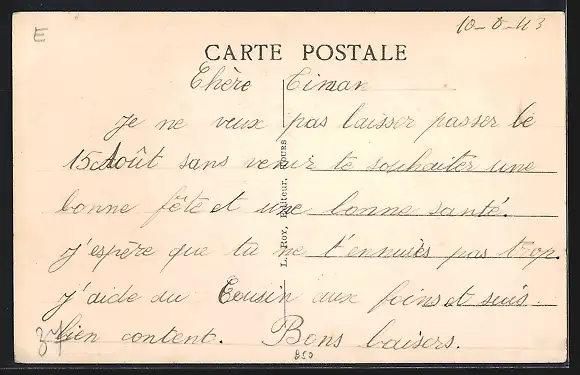 E
10-8-43
CARTE POSTALE
Chère
Je ne veux pas laisser passer le
15 Août sans venir te souhaiter une
bonne fête et une bonne santé.
j'espère que tu ne t'ennuies pas trop.
j'aide du Cousin aux foins et suis
bien content. Bons baisers.
L. Roy, Editeur, TOURS
37
B50